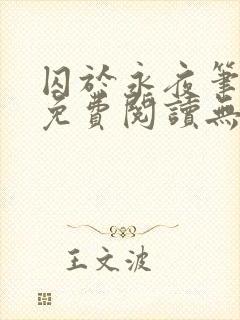 囚於永夜筆
免費閱讀無
王文波